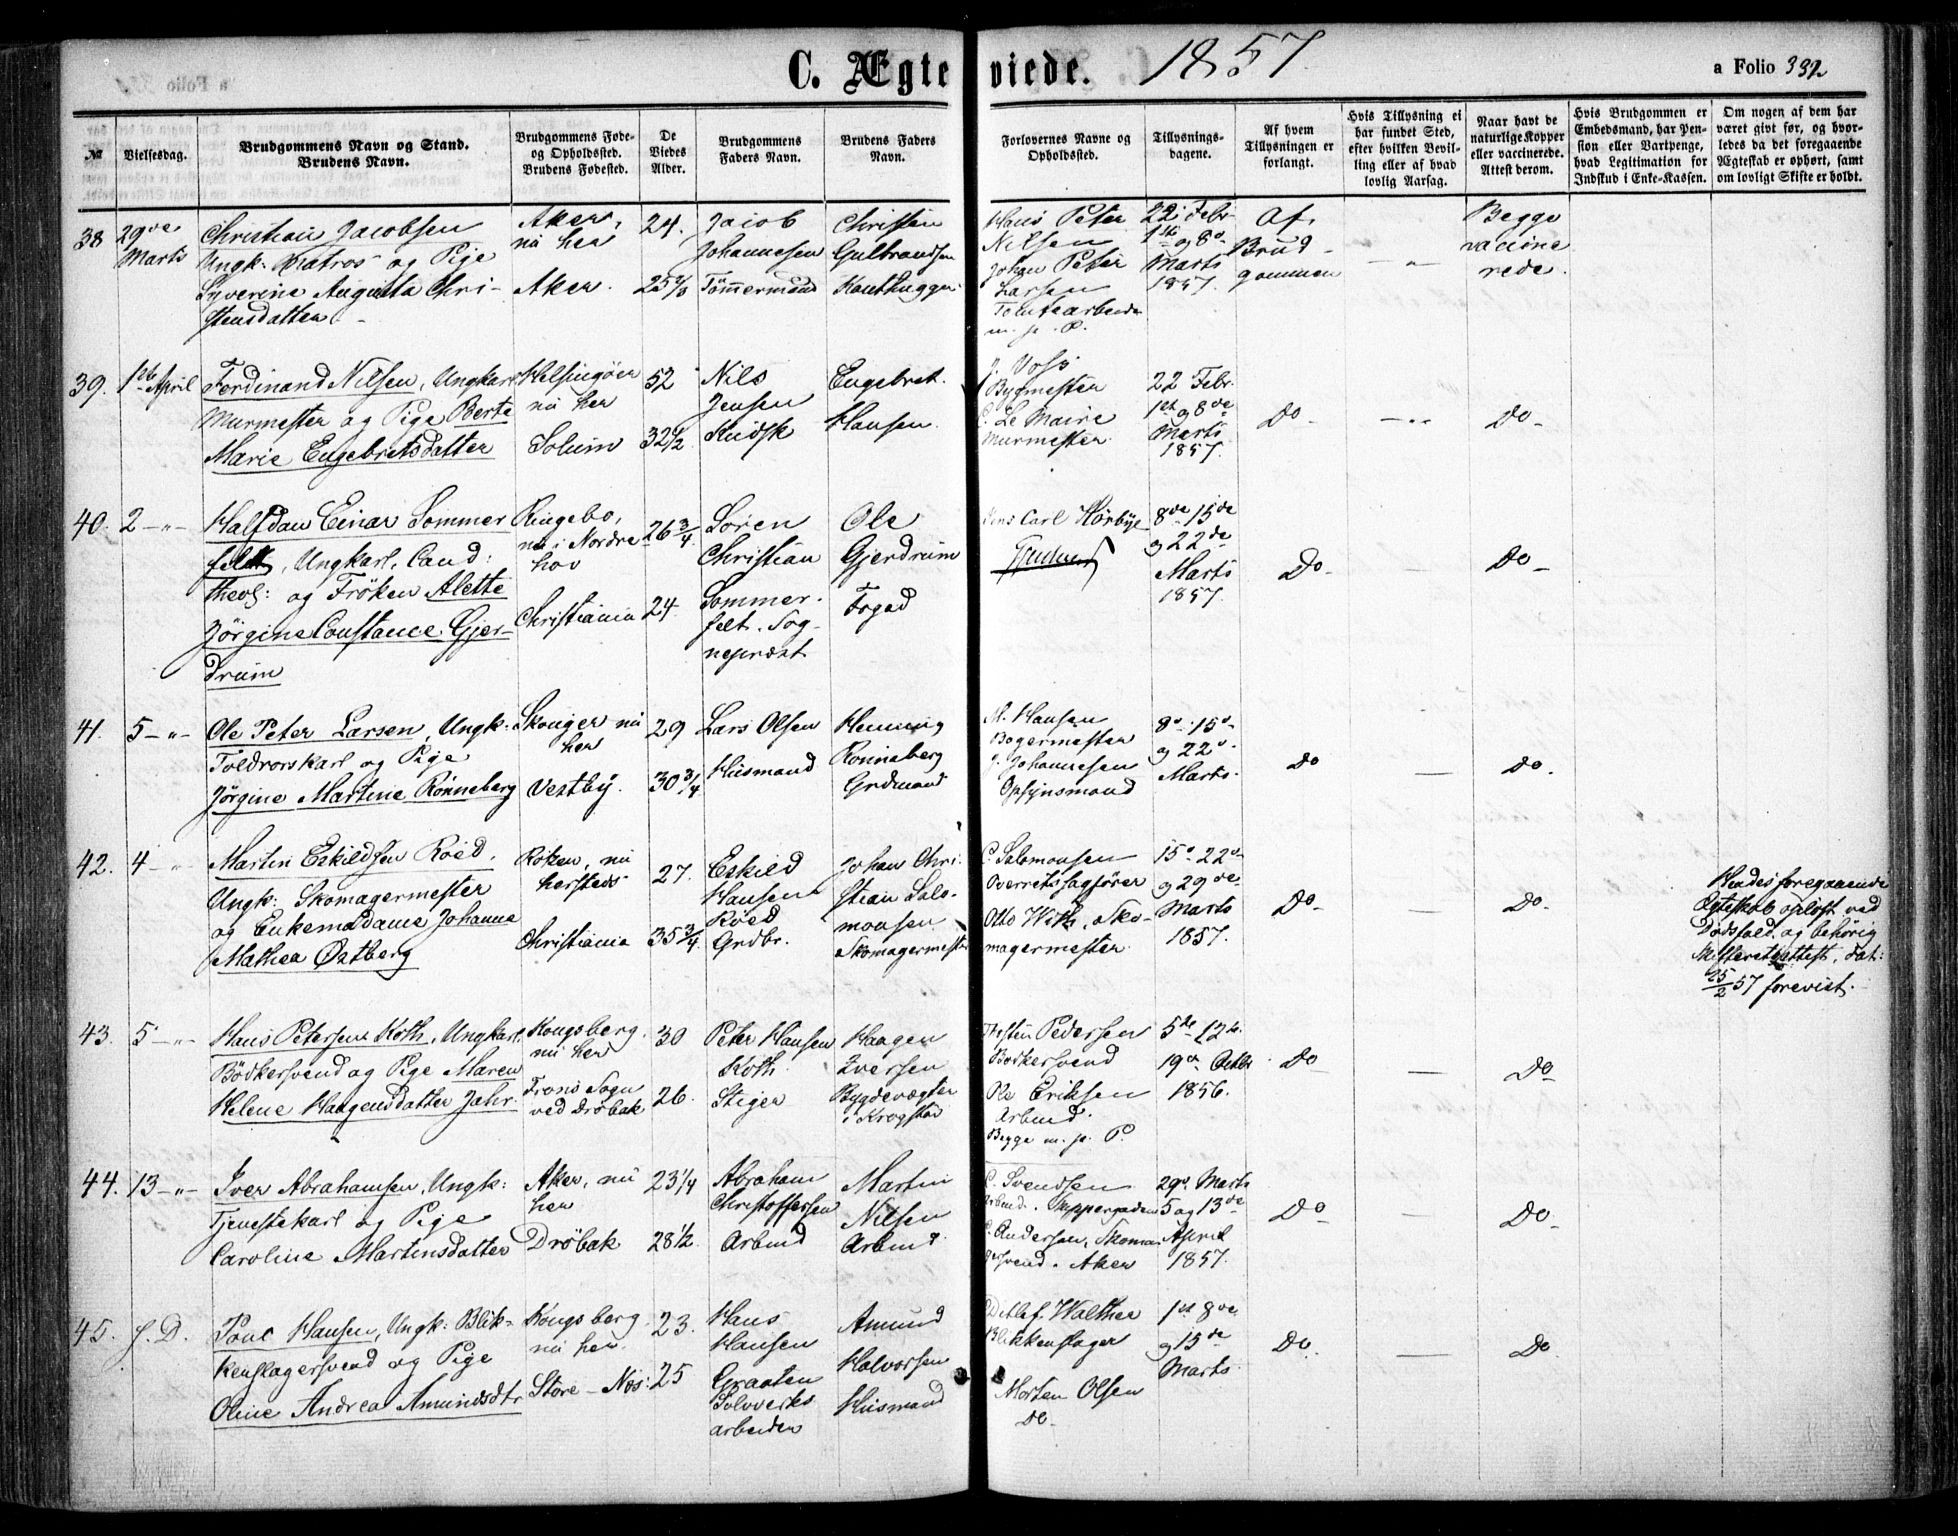 C. Ægteviede. 1857
a Folio 332
№
Vielsesdag.
Brudgommens Navn og Stand.
Brudens Navn.
Brudgommens Føde-
og Opholdssted.
Brudens Fødested.
De
Viedes
Alder.
Brudgommens
Faders Navn.
Brudens Faders
Navn.
Forlovernes Navne og
Opholdssted.
Tillysnings-
dagene.
Af hvem
Tillysningen er
forlangt.
Hvis Tillysning ei
har fundet Sted,
efter hvilken Bevil-
ling eller af hvad
lovlig Aarsag.
Naar havt de
naturlige Kopper
eller vaccinerede.
Attest derom.
Hvis Brudgommen er
Embedsmand, har Pen-
sion eller Vartpenge,
hvad Legitimation for
Indskud i Enke-Kassen.
Om nogen af dem har
været gift før, og hvor-
ledes da det foregaaende
Ægteskab er ophørt, samt
om lovligt Skifte er holdt.
38
29de
Marts
Christian Jacobsen
Ungk: Matros og Pige
Syverine Augusta Chri-
stensdatter
Aker,
nu her
Aker.
24.
Jacob
Johannesen
Tømmermand
Christen
Gulbrandsen
Hans Peter
Nilsen
Johan Peter
Larsen
m. p. P.
22 Febr
1ste og 8de
Marts
1857.
Af
Brud-
gommen
— „ —
Begge
vaccine
rede.
39.
1ste April
Ferdinand Nilsen, Ungkarl
Murmester og Pige Berte
Marie Engebretsdatter
Helsingøer
nu her
Solum
52
32 1/2
Nils
Jensen
Kudsk
Engebret
Hansen
J. Voss
Bygmester
C. Le Maire
Murmester
22 Febr.
1ste og 8de
Marts
1857.
Do
— „ —
Do
40.
2 — „ —
Halfdan Einar Sommer
feldt, Ungkarl, Cand:
theol: og Frøken Alette
Jørgine Constance Gjer-
drum
Ringebo,
nu i Nordre
hov
Christiania
26 3/4
24.
Søren
Christian
Sommer-
felt. Sog-
neprest
Ole
Gjerdrum
Foged
Jens Carl Hørbye
8de 15de
og 22de
Marts
1857.
Do
—
Do
41.
5 — „ —
Ole Peter Larsen, Ungk:
Toldrorskarl og Pige
Jørgine Martine Rønneberg
Skouger nu
her
Vestby.
29
30 3/4
Lars Olsen
Husmand
Henning
Rønneberg
Grdmand
H. Hansen
Bagermester
J. Johannesen
Opsynsmand
8de 15de
og 22de
Marts.
Do
—
Do.
42.
4 — „
Martin Eskildsen Røed.
Ungk: Skomagermester
og Enkemadame Johanne
Mathea Østberg
Røken, nu
hersteds
Christiania
27.
35 3/4
Eskild
Hansen
Røed
Grdbr.
Johan Chri-
stian Salo-
monsen
Skomagermester
C. Salomonsen
Overretssagfører
Otto With, Sko-
magermester
15de 22de
og 29de
Marts
1857.
Do
—
Do
Hendes foregaaende
Ægteskab opløst ved
Dødsfald, og behørig
Skifteretsattest, dat:
25/2 57 forevist.
43.
5 — „ —
Hans Petersen Koth, Ungkarl
Bødkersvend og Pige Maren
Helene Haagensdatter Jahr.
Kongsberg
nu her
Frons Sogn
ved Drøbak
30
26.
Peter Hansen
Koth
Stiger
Haagen
Iversen
Bygdevægter
i Krogstad
Thosten Pedersen
Bødkersvend
Ole Eriksen
Arbmd.
Begge m. p. P.
5te 12te
19de Octbr
1856.
Do
Do
44.
13 — „ —
Iver Abrahamsen, Ungk:
Tjenestekarl og Pige
Caroline Martinsdatter
Aker, nu
her
Drøbak
23 1/4
28 1/2
Abraham
Christoffersen
Arbmd
Martin
Nilsen
Arbmd
C. Svendsen
Arbmd. Skippergaden
C. Andersen, Skoma-
gersvend. Aker
29de Marts
5 og 13de
April
1857.
Do
—
Do
45.
f. D.
Poul Hansen, Ungk: Blik-
kenslagersvend og Pige
Oline Andrea Amundsdtr
Kongsberg
nu her
Store-Næs:
23.
25
Hans
Hansen
Graaten
Sølvverks
arbeider
Amund
Halvorsen
Husmand
Detlef Walther
Blikkenslager
Morten Olsen
Do
1ste 8de
og 15de
Marts
Do
—
Do